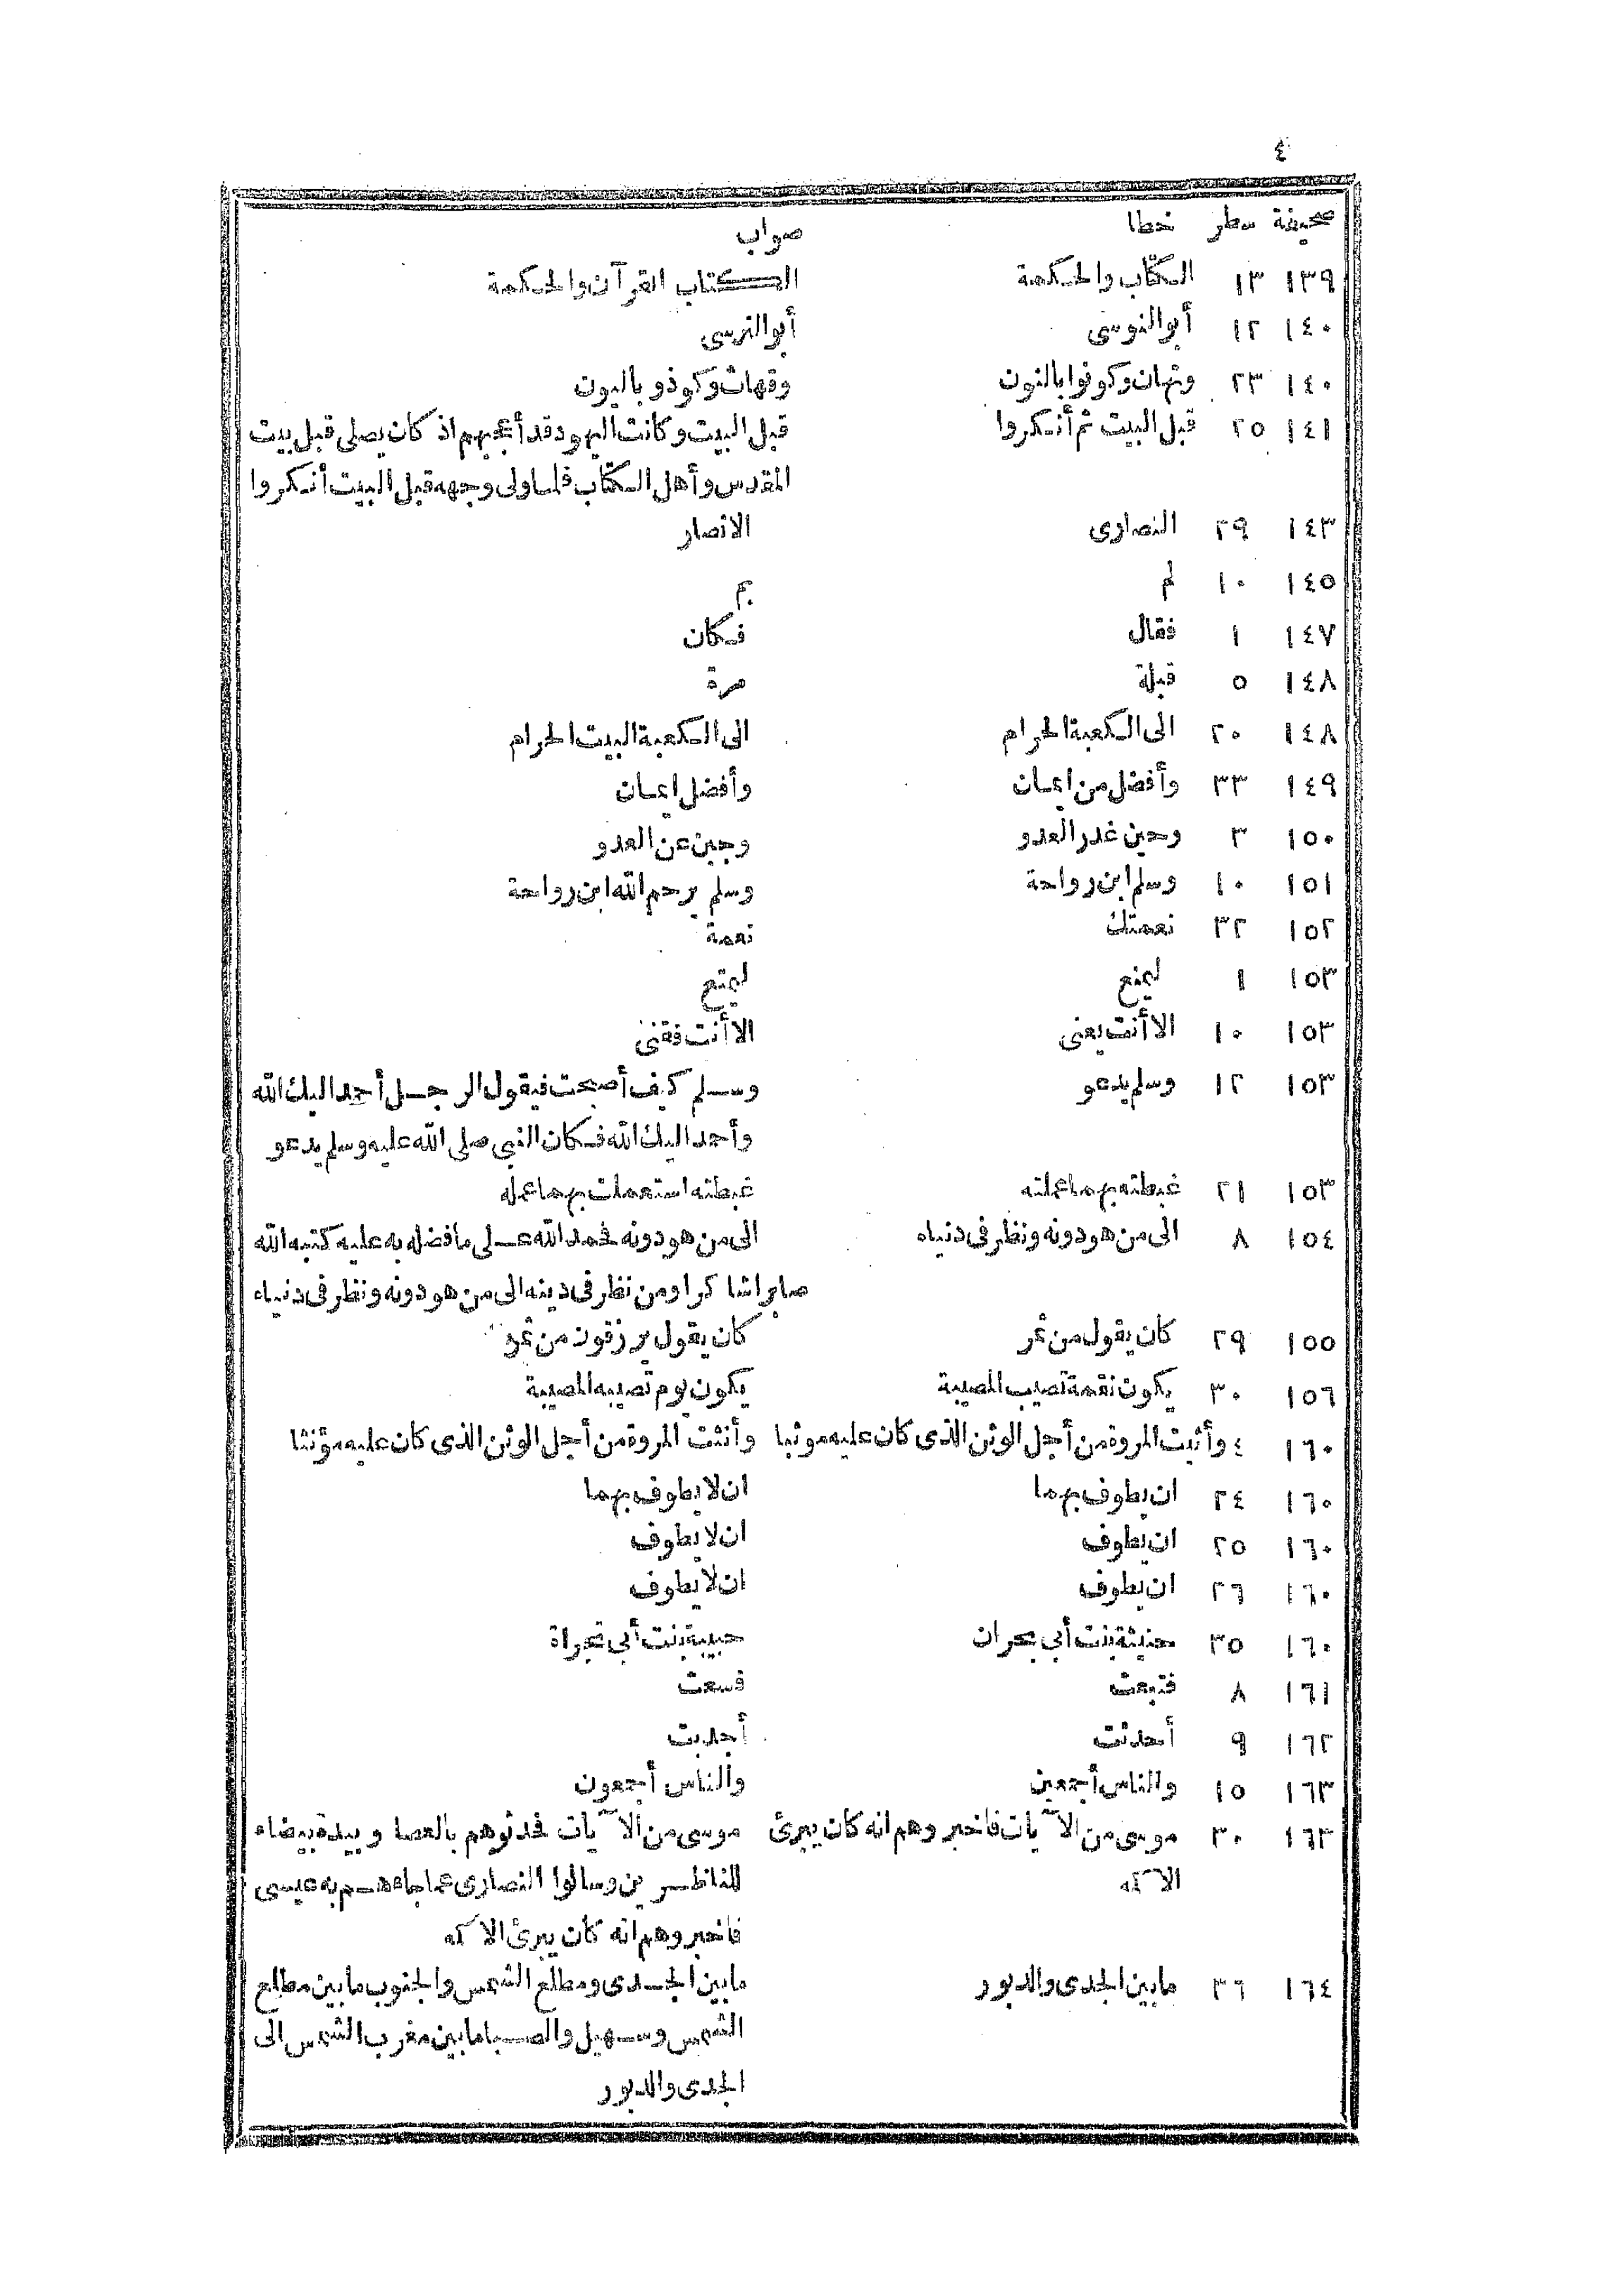 ٤
صحيفة سطر خطا صواب
١٣٩ ١٣ الكتاب والحكمة الكتاب القرآن والحكمة
١٤٠ ١٢ أبو النوسى أبو النرسى
١٤٠ ٢٣ وتهان وكونوا بالنون وقهاث وكوذو باليون
١٤١ ٢٥ قبل البيت ثم أنكروا قبل البيت وكانت اليهود قد أعجبهم اذ كان يصلى قبل بيت
المقدس وأهل الكتاب فلما ولى وجهه قبل البيت أنكروا
١٤٣ ٢٩ النصارى الانصار
١٤٥ ١٠ لم بم
١٤٧ ١ فقال فكان
١٤٨ ٥ قبلة مرة
١٤٨ ٢٠ الى الكعبة الحرام الى الكعبة البيت الحرام
١٤٩ ٣٣ وأفضل من ايمان وأفضل ايمان
١٥٠ ٣ وحين غدر العدو وجبن عن العدو
١٥١ ١٠ وسلم ابن رواحة وسلم يرحم الله ابن رواحة
١٥٢ ٣٢ نعمتك نعمة
١٥٣ ١ ليمنع ليمتع
١٥٣ ١٠ الا أنت يعنى الا أنت فقنى
١٥٣ ١٢ وسلم يدعو وسلم كيف أصبحت فيقول الرجل أحمد اليك الله
وأحمد اليك الله فكان النبي صلى الله عليه وسلم يدعو
١٥٣ ٢١ غبطته بهما عملته غبطته استعملت بهما عمله
١٥٤ ٨ الى من هو دونه ونظر فى دنياه الى من هو دونه فحمد الله على ما فضله به عليه كتبه الله
صابرا شاكرا ومن نظر فى دينه الى من هو دونه ونظر فى دنياه
١٥٥ ٢٩ كان يقول من ثمر كان يقول يرزقون من ثمر
١٥٦ ٣٠ يكون نقمة تصيب المصيبة يكون يوم تصيبه المصيبة
١٦٠ ٤ وأثبت المروة من أجل الوثن الذى كان عليه موثبا وأنثت المروة من أجل الوثن الذى كان عليه مؤنثا
١٦٠ ٢٤ ان يطوف بهما ان لا يطوف بهما
١٦٠ ٢٥ ان يطوف ان لا يطوف
١٦٠ ٢٦ ان يطوف ان لا يطوف
١٦٠ ٣٥ بنت أبي بحران حبيبة بنت أبى تجراة
١٦١ ٨ فتبعت فسعت
١٦٢ ٩ أحدثت أجدبت
١٦٣ ١٥ والناس أجمعين والناس أجمعون
١٦٣ ٣٠ موسى من الآيات فاخبروهم انه كان يبرئ موسى من الآيات فحدثوهم بالعصا وبيده بيضاء
الاكمه للناظرين وسالوا النصارى عما جاءهم به عيسى
فاخبروهم انه كان يبرئ الاكمه
١٦٤ ٣٦ ما بين الجدى والدبور ما بين الجدى ومطلع الشمس والجنوب ما بين مطلع
الشمس وسهيل والصبا ما بين مغرب الشمس الى
الجدى والدبور